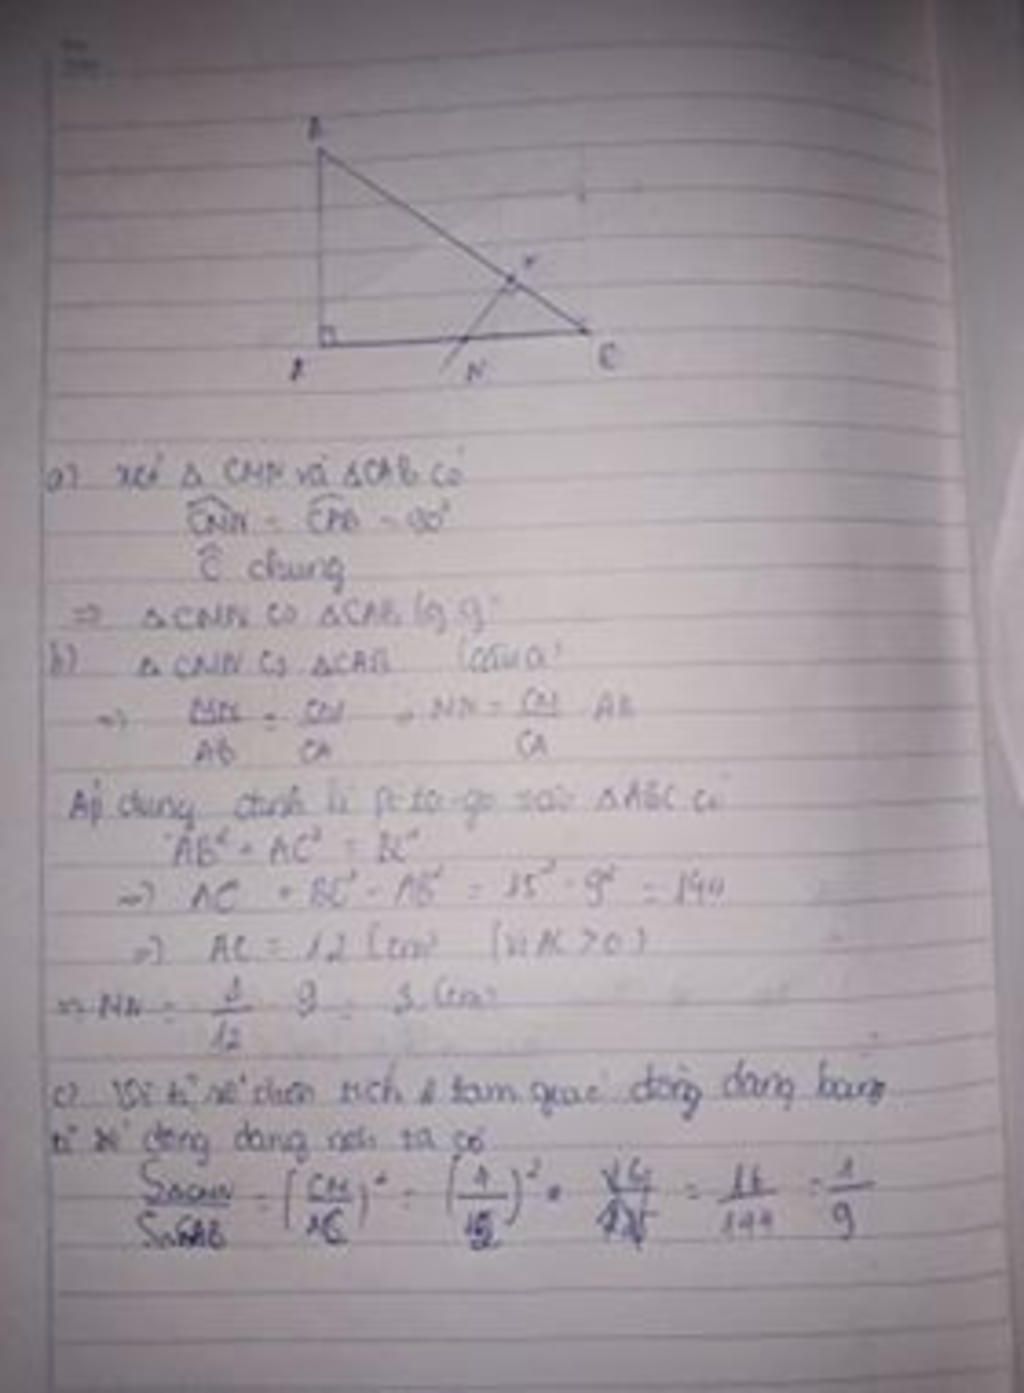 N
C
a) xét Δ CMN và ΔCAB có
CMN = CAB = 90°
Ĉ chung
=> ΔCMN ∽ ΔCAB (g.g)
b) ΔCMN ∽ ΔCAB (câu a)
=> MN/AB = CM/CA => MN = CM/CA . AB
Áp dụng định lí Pi-ta-go vào ΔABC có
AB² + AC² = BC²
=> AC² = BC² - AB² = 15² - 9² = 144
=> AC = 12 (cm) (vì AC > 0)
=> MN = 4/12 . 9 = 3 (cm)
c) Vì tỉ số diện tích 2 tam giác đồng dạng bằng
tỉ số đồng dạng nên ta có
SΔCMN/SΔCAB = (CM/AC)² = (4/12)² = 16/144 = 1/9